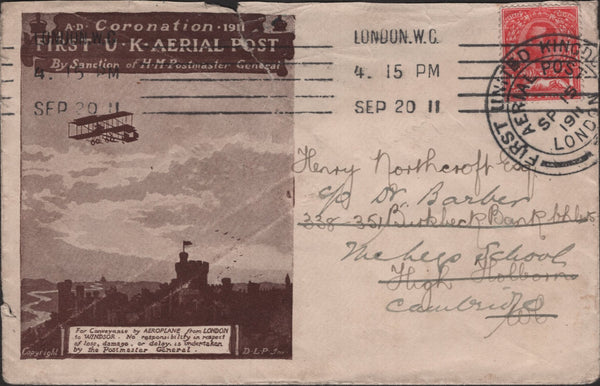 A.D. Coronation · 1911
FIRST · U · K · AERIAL POST
By Sanction of H·M·Postmaster General
LONDON.W.C.
4. 15 PM
SEP 20 11
LONDON.W.C.
4. 15 PM
SEP 20 11
FIRST UNITED KINGDOM
AERIAL POST
SP 15
1911
LONDON
Henry Northcroft Esq
c/o Dr Barber
338-351 Birkbeck Bank
School
High Holborn
Cambridge
WC
For Conveyance by AEROPLANE from LONDON
to WINDSOR. No responsibility in respect
of loss, damage, or delay, is undertaken
by the Postmaster General.
Copyright
D·L·P·